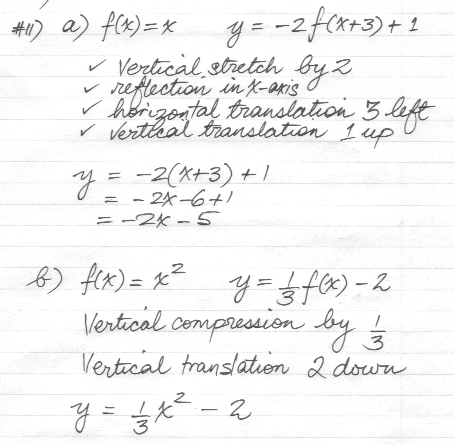 #11) a) f(x) = x y = -2f(x+3) + 1
✓ Vertical stretch by 2
✓ reflection in x-axis
✓ horizontal translation 3 left
✓ vertical translation 1 up
y = -2(x+3) + 1
= -2x - 6 + 1
= -2x - 5
b) f(x) = x² y = 1/3 f(x) - 2
Vertical compression by 1/3
Vertical translation 2 down
y = 1/3 x² - 2